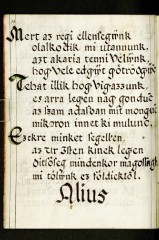 Mert az regi ellensegwnk
olalkodik mi utannunk.
azt akaria tenni Velwnk,
hogÿ Vele edgÿwt
Tehat illik hogÿ vigazzunk,
es arra legen nagÿ gondunk
az ßam adasban mit mongiunk
mikoron innet ki mulunk.
Ezekre minket segellien,
az vr Isten kinek legen
Diczőseg mindenkor
mi tőlwnk ez földiektől.
Alius